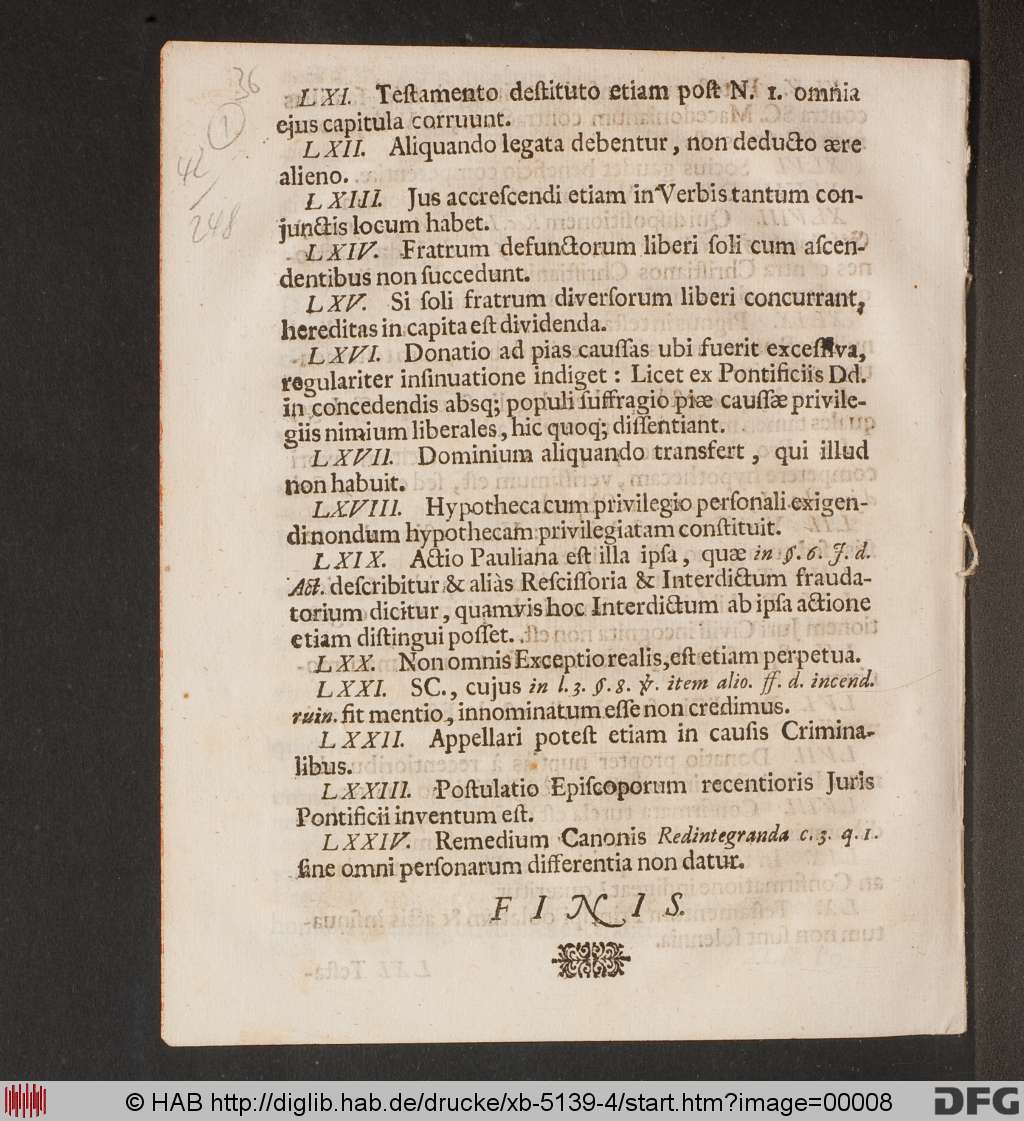 36
1
42
248
LXI. Teſtamento deſtituto etiam poſt N. 1. omnia
ejus capitula corruunt.
LXII. Aliquando legata debentur, non deducto ære
alieno.
LXIII. Jus accreſcendi etiam in Verbis tantum con-
junctis locum habet.
LXIV. Fratrum defunctorum liberi ſoli cum aſcen-
dentibus non ſuccedunt.
LXV. Si ſoli fratrum diverſorum liberi concurrant,
hereditas in capita eſt dividenda.
LXVI. Donatio ad pias cauſſas ubi fuerit exceſſiva,
regulariter inſinuatione indiget: Licet ex Pontificiis Dd.
in concedendis absq; populi ſuffragio piæ cauſſæ privile-
giis nimium liberales, hic quoq; diſſentiant.
LXVII. Dominium aliquando transfert, qui illud
non habuit.
LXVIII. Hypotheca cum privilegio perſonali exigen-
di nondum hypothecam privilegiatam conſtituit.
LXIX. Actio Pauliana eſt illa ipſa, quæ in §. 6. J. d.
Act. deſcribitur & aliàs Reſciſſoria & Interdictum frauda-
torium dicitur, quamvis hoc Interdictum ab ipſa actione
etiam diſtingui poſſet.
LXX. Non omnis Exceptio realis, eſt etiam perpetua.
LXXI. SC., cujus in l. 3. §. 8. ꝟ. item alio. ff. d. incend.
ruin. fit mentio, innominatum eſſe non credimus.
LXXII. Appellari poteſt etiam in cauſis Crimina-
libus.
LXXIII. Poſtulatio Epiſcoporum recentioris Juris
Pontificii inventum eſt.
LXXIV. Remedium Canonis Redintegranda c. 3. q. 1.
ſine omni perſonarum differentia non datur.
FINIS.
© HAB http://diglib.hab.de/drucke/xb-5139-4/start.htm?image=00008
DFG